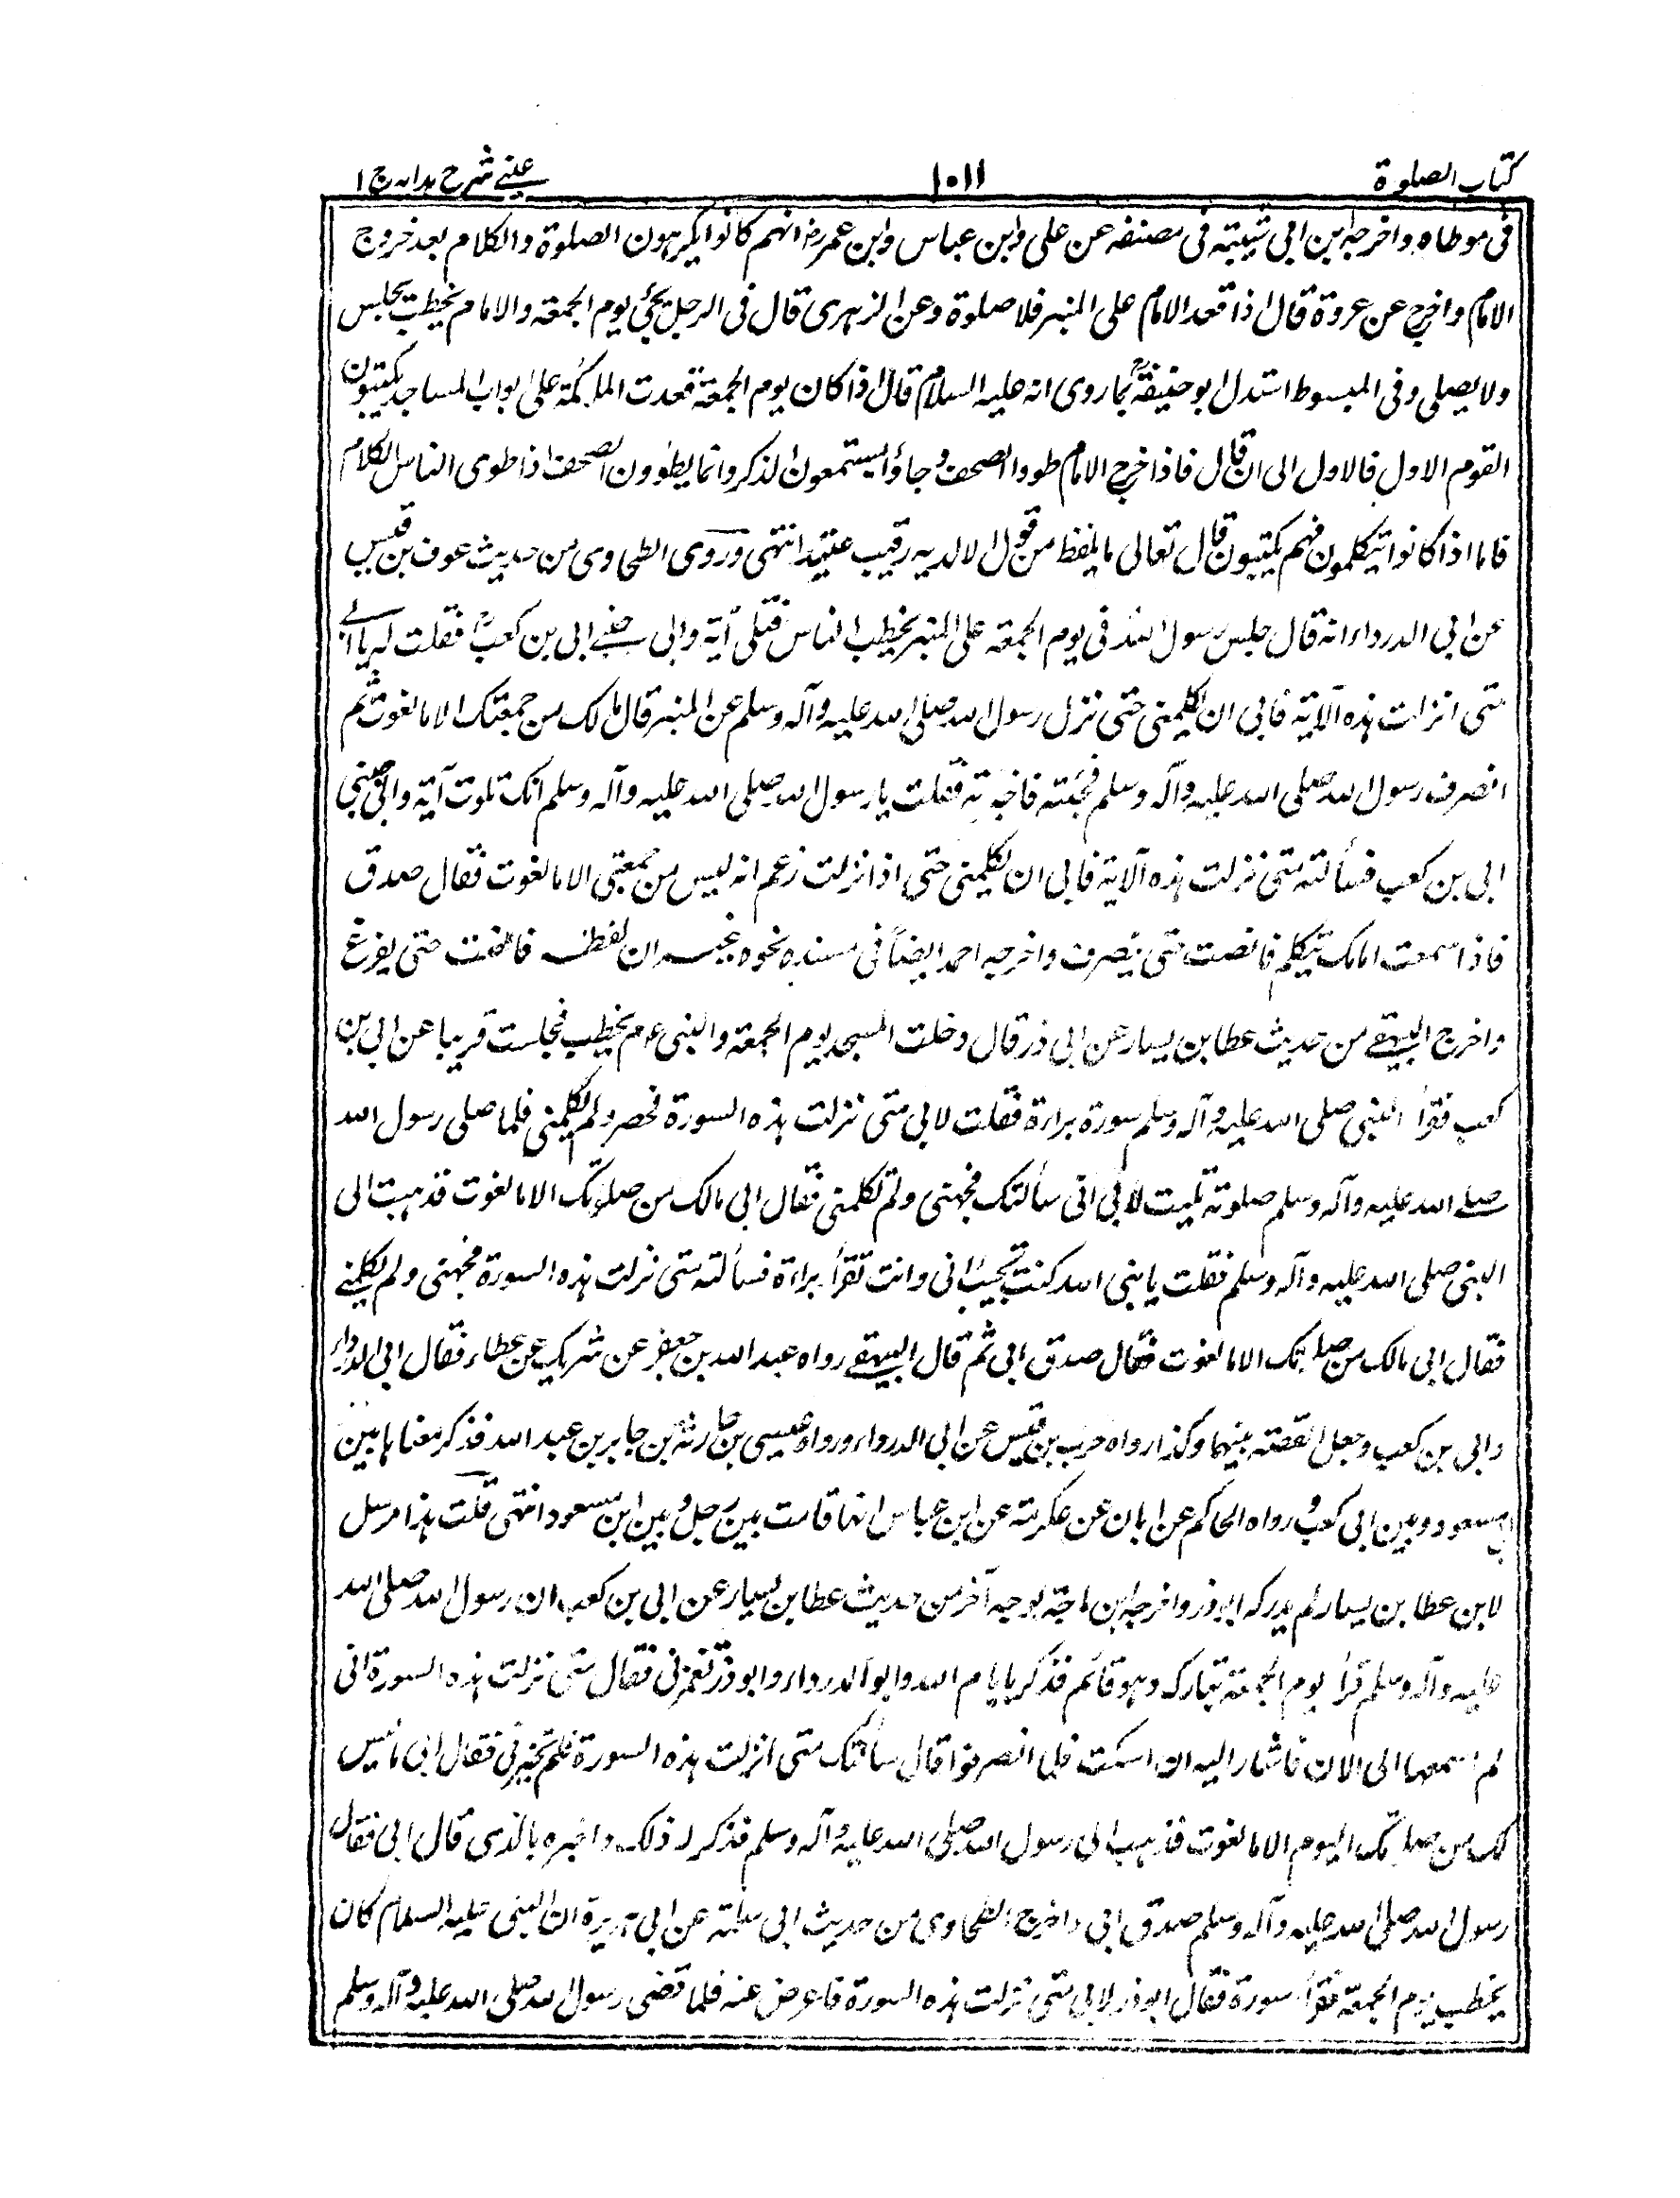 كتاب الصلوة
١٠١١
عينے شرح هدايه ج ١
فى موطاه واخرجه ابن ابى شيبة فى مصنفه عن على وابن عباس وابن عمررض انهم كانوا يكرهون الصلوة والكلام بعد خروج
الامام واخرج عن عروة قال اذا قعد الامام على المنبر فلا صلوة وعن الزهرى قال فى الرجل يجئ يوم الجمعة والامام يخطب يجلس
ولا يصلى وفى المبسوط استدل ابو حنيفةؒ بما روى انه عليه السلام قال اذا كان يوم الجمعة قعدت الملائكة على ابواب المساجد يكتبون
القوم الاول فالاول الى ان قال فاذا خرج الامام طووا الصحف وجاؤا يستمعون الذكر وانما يطوون الصحف اذا طوى الناس الكلام
فاما اذا كانوا يتكلمون فهم يكتبون قال تعالى ما يلفظ من قول الا لديه رقيب عتيد انتهى وروى الطحاوى من حديث عوف بن قيس
عن ابى الدرداء انه قال جلس رسول الله فى يوم الجمعة على المنبر يخطب الناس فتلى آية والى جنبے ابى بن كعبؓ فقلت له يا ابے
متى انزلت هذه الآية فابى ان يكلمنى حتى نزل رسول الله صلى الله عليه وآله وسلم عن المنبر قال مالك من جمعتك الا ما لغوت ثم
انصرف رسول الله صلى الله عليه وآله وسلم فجئته فاخبرته فقلت يا رسول الله صلى الله عليه وآله وسلم انك تلوت آية والى جنبى
ابى بن كعب فسألته متى نزلت هذه الآية فابى ان يكلمنى حتى اذا نزلت زعم انه ليس من جمعتى الا ما لغوت فقال صدق
فاذا سمعت امامك يتكلم فانصت حتى ينصرف واخرجه احمد ايضاً فى مسنده نحوه غير ان لفظه فانصت حتى يفرغ
واخرج البيهقے من حديث عطا بن يسار عن ابى ذر قال دخلت المسجد يوم الجمعة والنبى عم يخطب فجلست قريبا عن ابى بن
كعب فقرأ النبى صلى الله عليه وآله وسلم سورة براءة فقلت لابى متى نزلت هذه السورة فحصر ولم يكلمنى فلما صلى رسول الله
صلے الله عليه وآله وسلم صلوته قلت لابى انى سألتك فجهنى ولم تكلمنى فقال ابى مالك من صلوتك الا ما لغوت فذهبت الى
النبى صلى الله عليه وآله وسلم فقلت يا نبى الله كنت بجنب ابى وانت تقرأ براءة فسألته متى نزلت هذه السورة فجهنى ولم يكلمنے
فقال ابى مالك من صلوتك الا ما لغوت فقال صدق ابى ثم قال البيهقے رواه عبد الله بن جعفر عن شريك عن عطاء فقال ابى الدرداء
وابى بن كعب وجعل القصة بينهما وكذا رواه حرب بن قيس عن ابى الدرداء ورواه عيسى بن جارية بن جابر بن عبد الله فذكر معناها بين
ابن مسعود وبين ابى كعب ورواه الحاكم عن ابان عن عكرمة عن ابن عباس انها قامت بين رجل وبين ابن مسعود انتهى قلت هذا مرسل
لا بن عطا بن يسار لم يدركه ابو ذر واخرجه ابن ماجة بوجه آخر من حديث عطا بن يسار عن ابى بن كعب ان رسول الله صلى الله
عليه وآله وسلم قرأ يوم الجمعة تبارك وهو قائم فذكر بايام الله وابو الدرداء وابو ذر تغمزنى فقال متى نزلت هذه السورة انى
لم اسمعها الى الان فاشار اليه ان اسكت فلما انصرفوا قال سألتك متى انزلت هذه السورة فلم تخبرنى فقال ابى ما ليس
لك من صلوتك اليوم الا ما لغوت فذهب الى رسول الله صلى الله عليه وآله وسلم فذكر له ذلك واخبره بالذى قال ابى فقال
رسول الله صلى الله عليه وآله وسلم صدق ابى واخرج الطحاوى من حديث ابى سلمة عن ابى هريرة ان النبى عليه السلام كان
يخطب يوم الجمعة فقرأ سورة فقال ابو ذر لابى متى نزلت هذه السورة فاعرض عنه فلما قضى رسول الله صلى الله عليه وآله وسلم